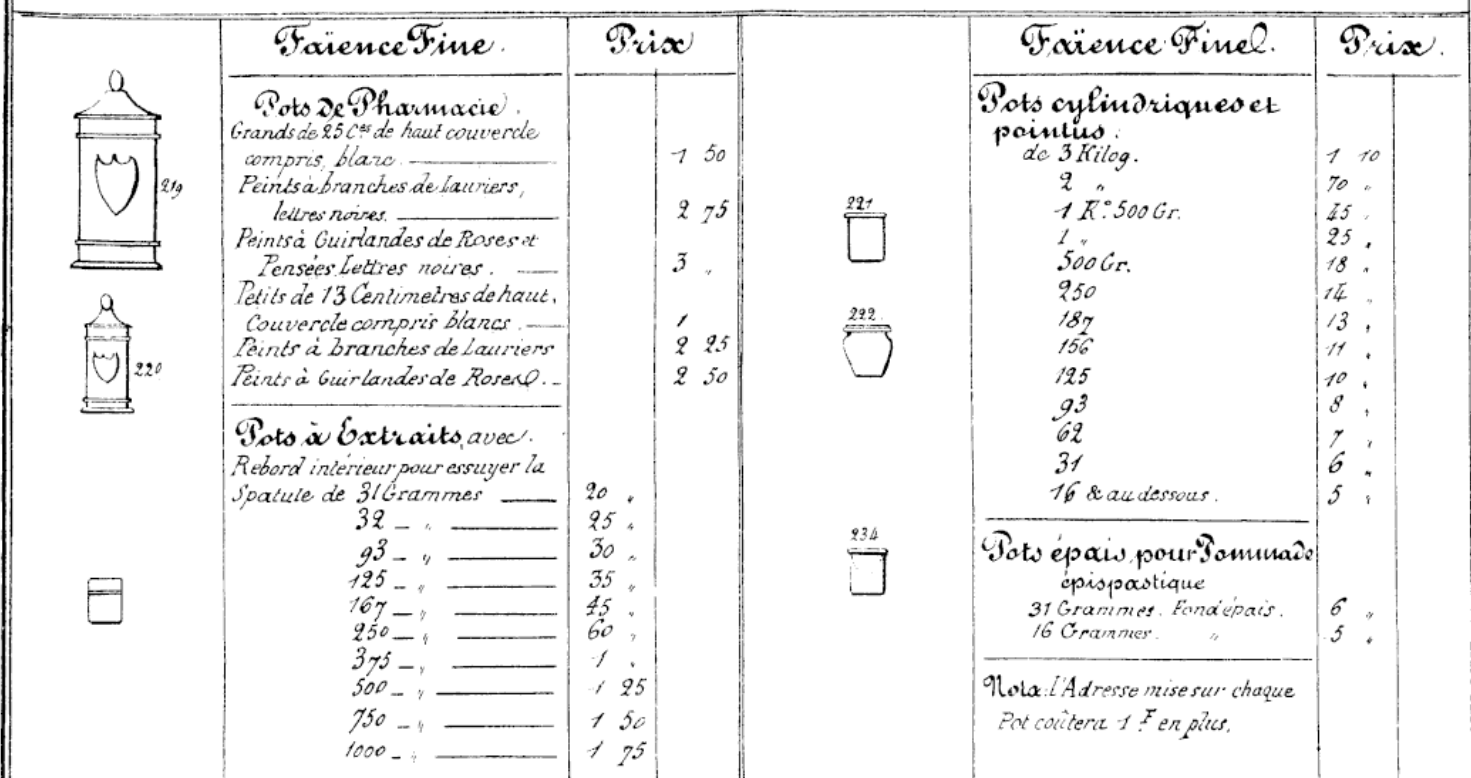 Faïence Fine. Prix
Pots de Pharmacie.
Grands de 25 Ces de haut couvercle
compris, blanc. 1 50
219
Peints à branches de Lauriers,
lettres noires. 2 75
Peints à Guirlandes de Roses et
Pensées Lettres noires. 3 "
Petits de 13 Centimetres de haut,
Couvercle compris blancs. 1
Peints à branches de Lauriers 2 25
220
Peints à Guirlandes de Roses 2 50
Pots à Extraits, avec.
Rebord intérieur pour essuyer la
Spatule de 31 Grammes 20 "
32 – " 25 "
93 – " 30 "
125 – " 35 "
167 – " 45 "
250 – " 60 "
375 – " 1 "
500 – " 1 25
750 – " 1 50
1000 – " 1 75
Faïence Fine. Prix.
Pots cylindriques et
pointus.
de 3 Kilog. 1 10
2 " 70 "
221
1 K° 500 Gr. 45 "
1 " 25 "
500 Gr. 18 "
250 14 "
222.
187 13 "
156 11 "
125 10 "
93 8 "
62 7 "
31 6 "
16 & au dessous. 5 "
234
Pots épais, pour Pommade
épispastique
31 Grammes. Fond épais. 6 "
16 Grammes. " 5 "
Nota: l'Adresse mise sur chaque
Pot coûtera 1 F en plus.